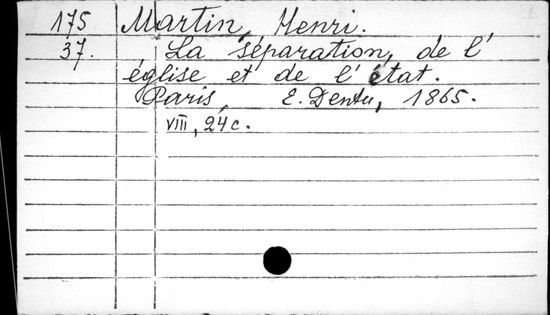 175 Martin, Henri.
37. La séparation, de l'
église et de l'état.
Paris, E. Dentu, 1865.
VIII, 24 c.